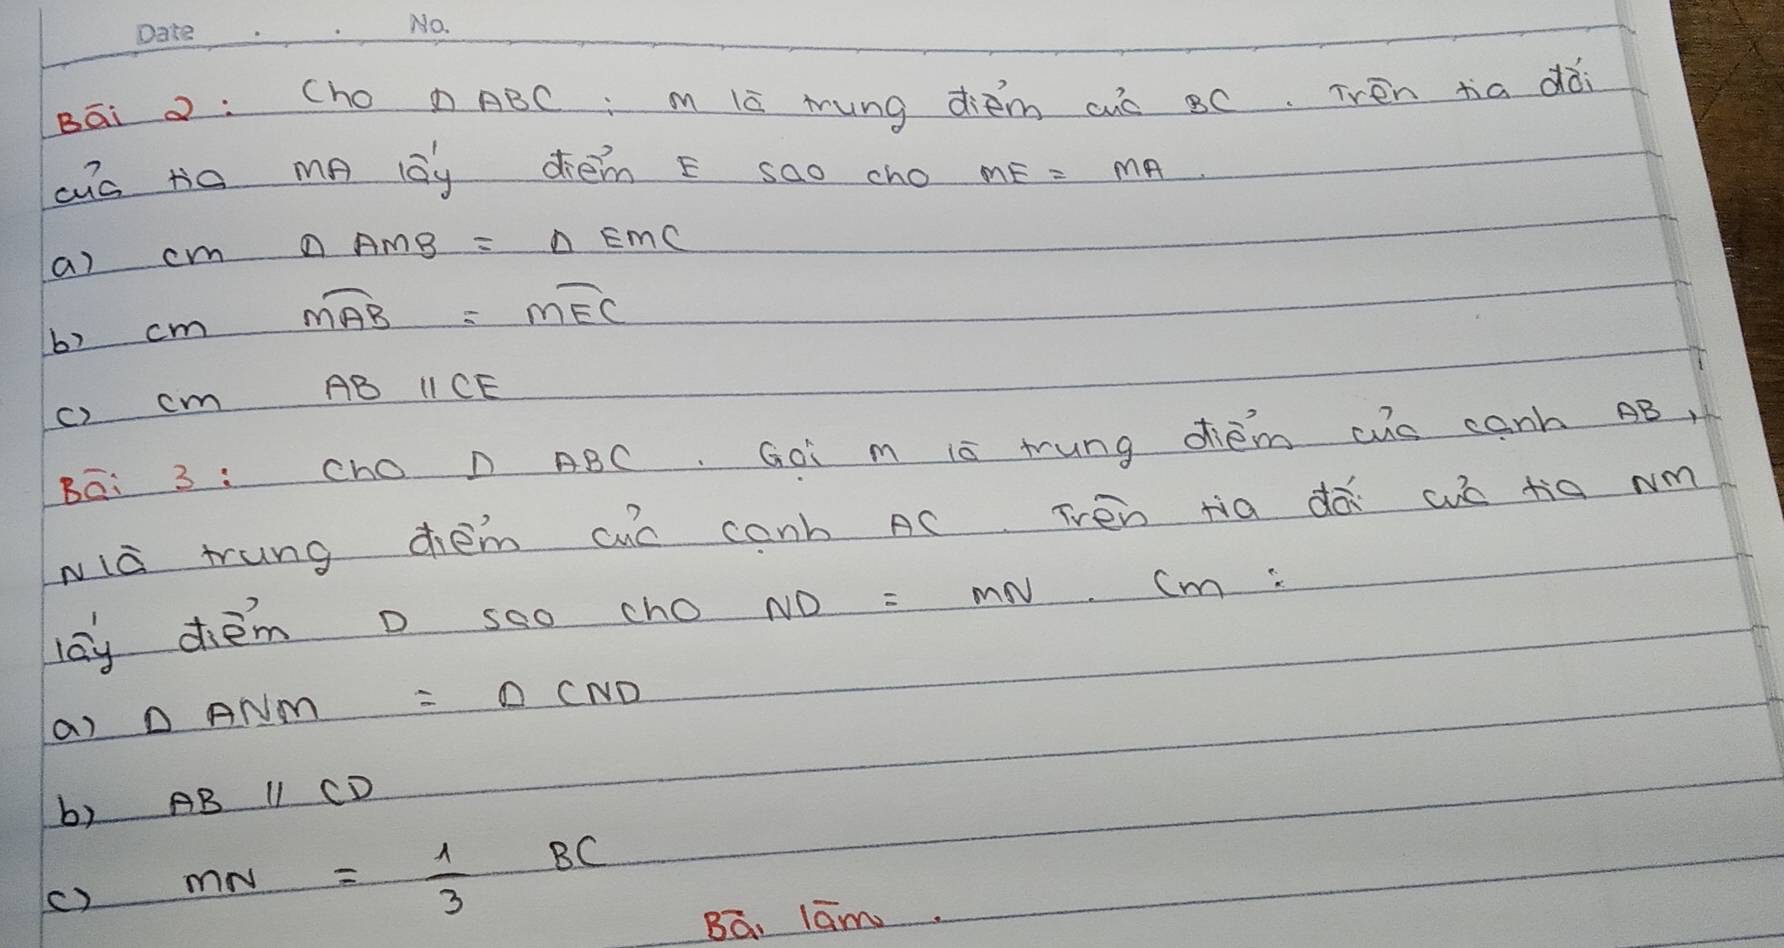 Date . . No.
Bài 2: Cho Δ ABC; M là trung điểm của BC. Trên tia đối
của tia MA lấy điểm E sao cho ME = MA.
a) cm Δ AMB = Δ EMC
b) cm \widehat{MAB} = \widehat{MEC}
c) cm AB // CE
Bài 3: cho Δ ABC. Gọi M là trung điểm của cạnh AB,
N là trung điểm của cạnh AC. Trên tia đối của tia NM
lấy điểm D sao cho ND = MN. Cm:
a) Δ ANM = Δ CND
b) AB // CD
c) MN = 1/3 BC
Bài làm.